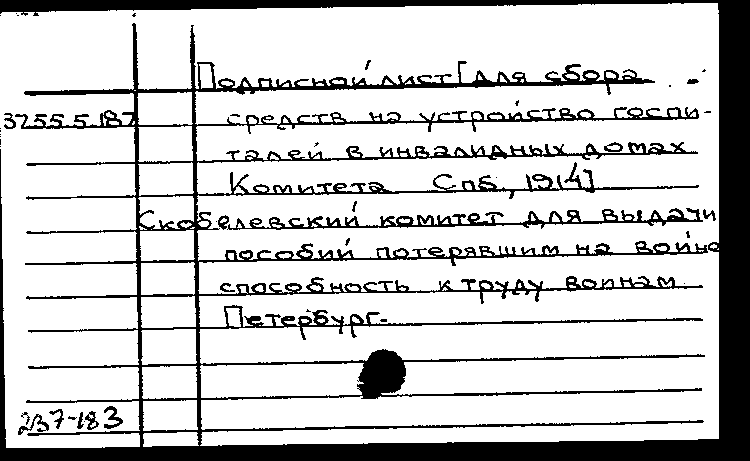 Подписной лист [для сбора
3255.5.187 средств на устройство госпи-
талей в инвалидных домах
Комитета Спб., 1914]
Скобелевский комитет для выдачи
пособий потерявшим на войне
способность к труду воинам.
Петербург.
237-183